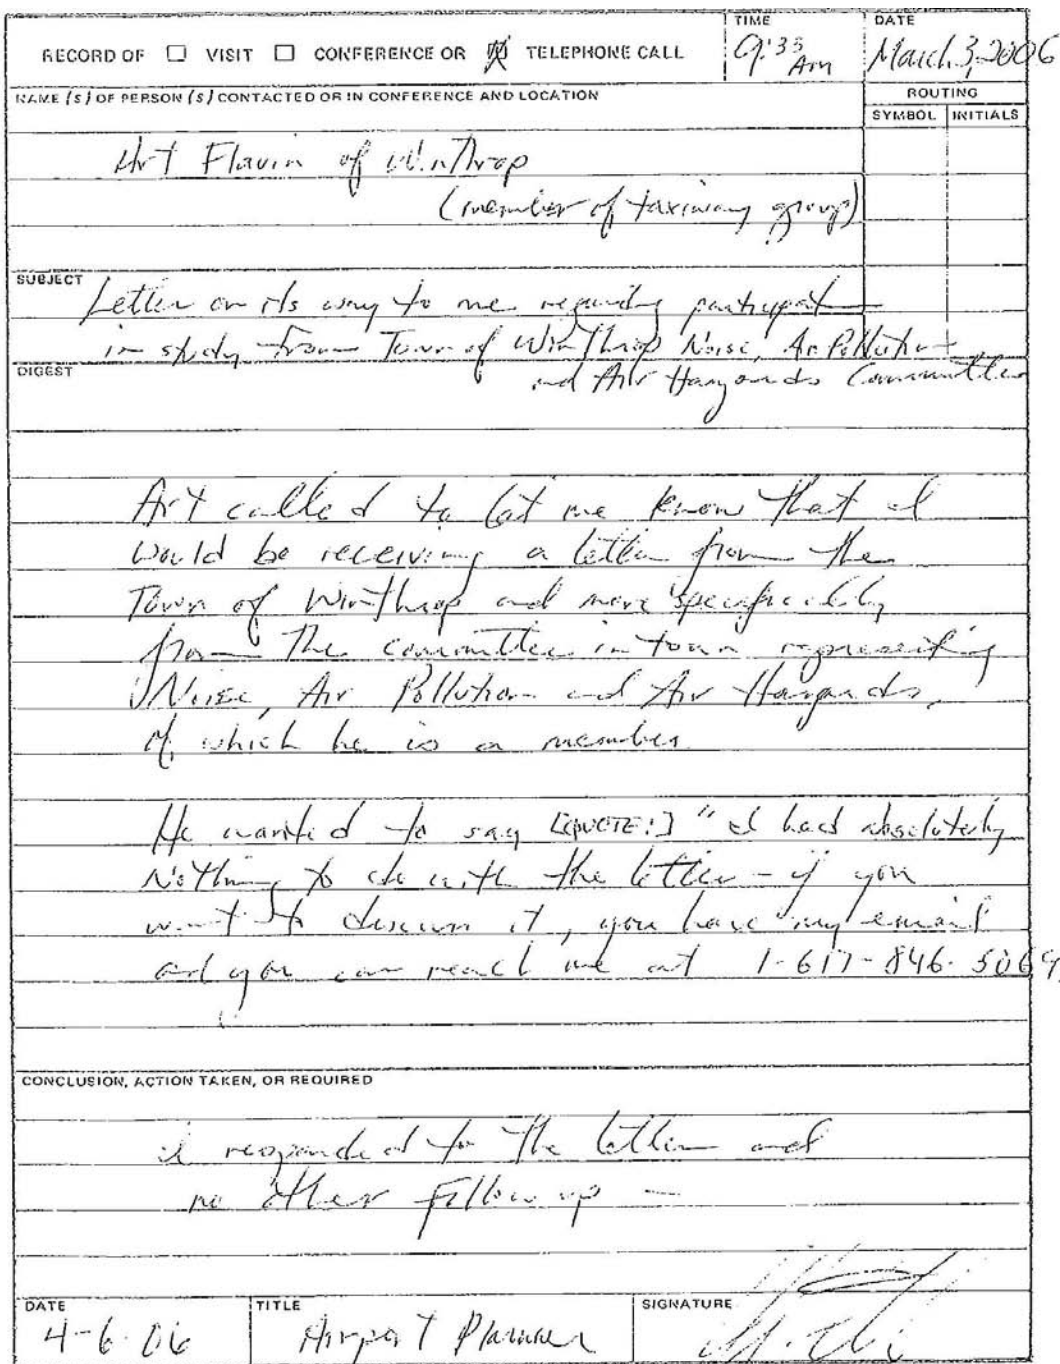 RECORD OF ☐ VISIT ☐ CONFERENCE OR ☒ TELEPHONE CALL
TIME
9:35 Am
DATE
March 3, 2006
NAME (S) OF PERSON (S) CONTACTED OR IN CONFERENCE AND LOCATION
ROUTING
SYMBOL INITIALS
Art Flavin of Winthrop
(member of taxiway group)
SUBJECT
Letter on its way to me regarding
in study from Town of Winthrop Noise, Air Pollution
DIGEST
and Air Hazards Committee
Art called to let me know that I
would be receiving a letter from the
Town of Winthrop and more specifically
from the committee in town representing
Noise, Air Pollution and Air Hazards,
of which he is a member
He wanted to say [QUOTE:] "I had absolutely
Nothing to do with the letter - if you
want to discuss it, you have my email
and you can reach me at 1-617-846-5069
CONCLUSION, ACTION TAKEN, OR REQUIRED
I responded to the letter and
no other follow up -
DATE
4-6-06
TITLE
Airport Planner
SIGNATURE